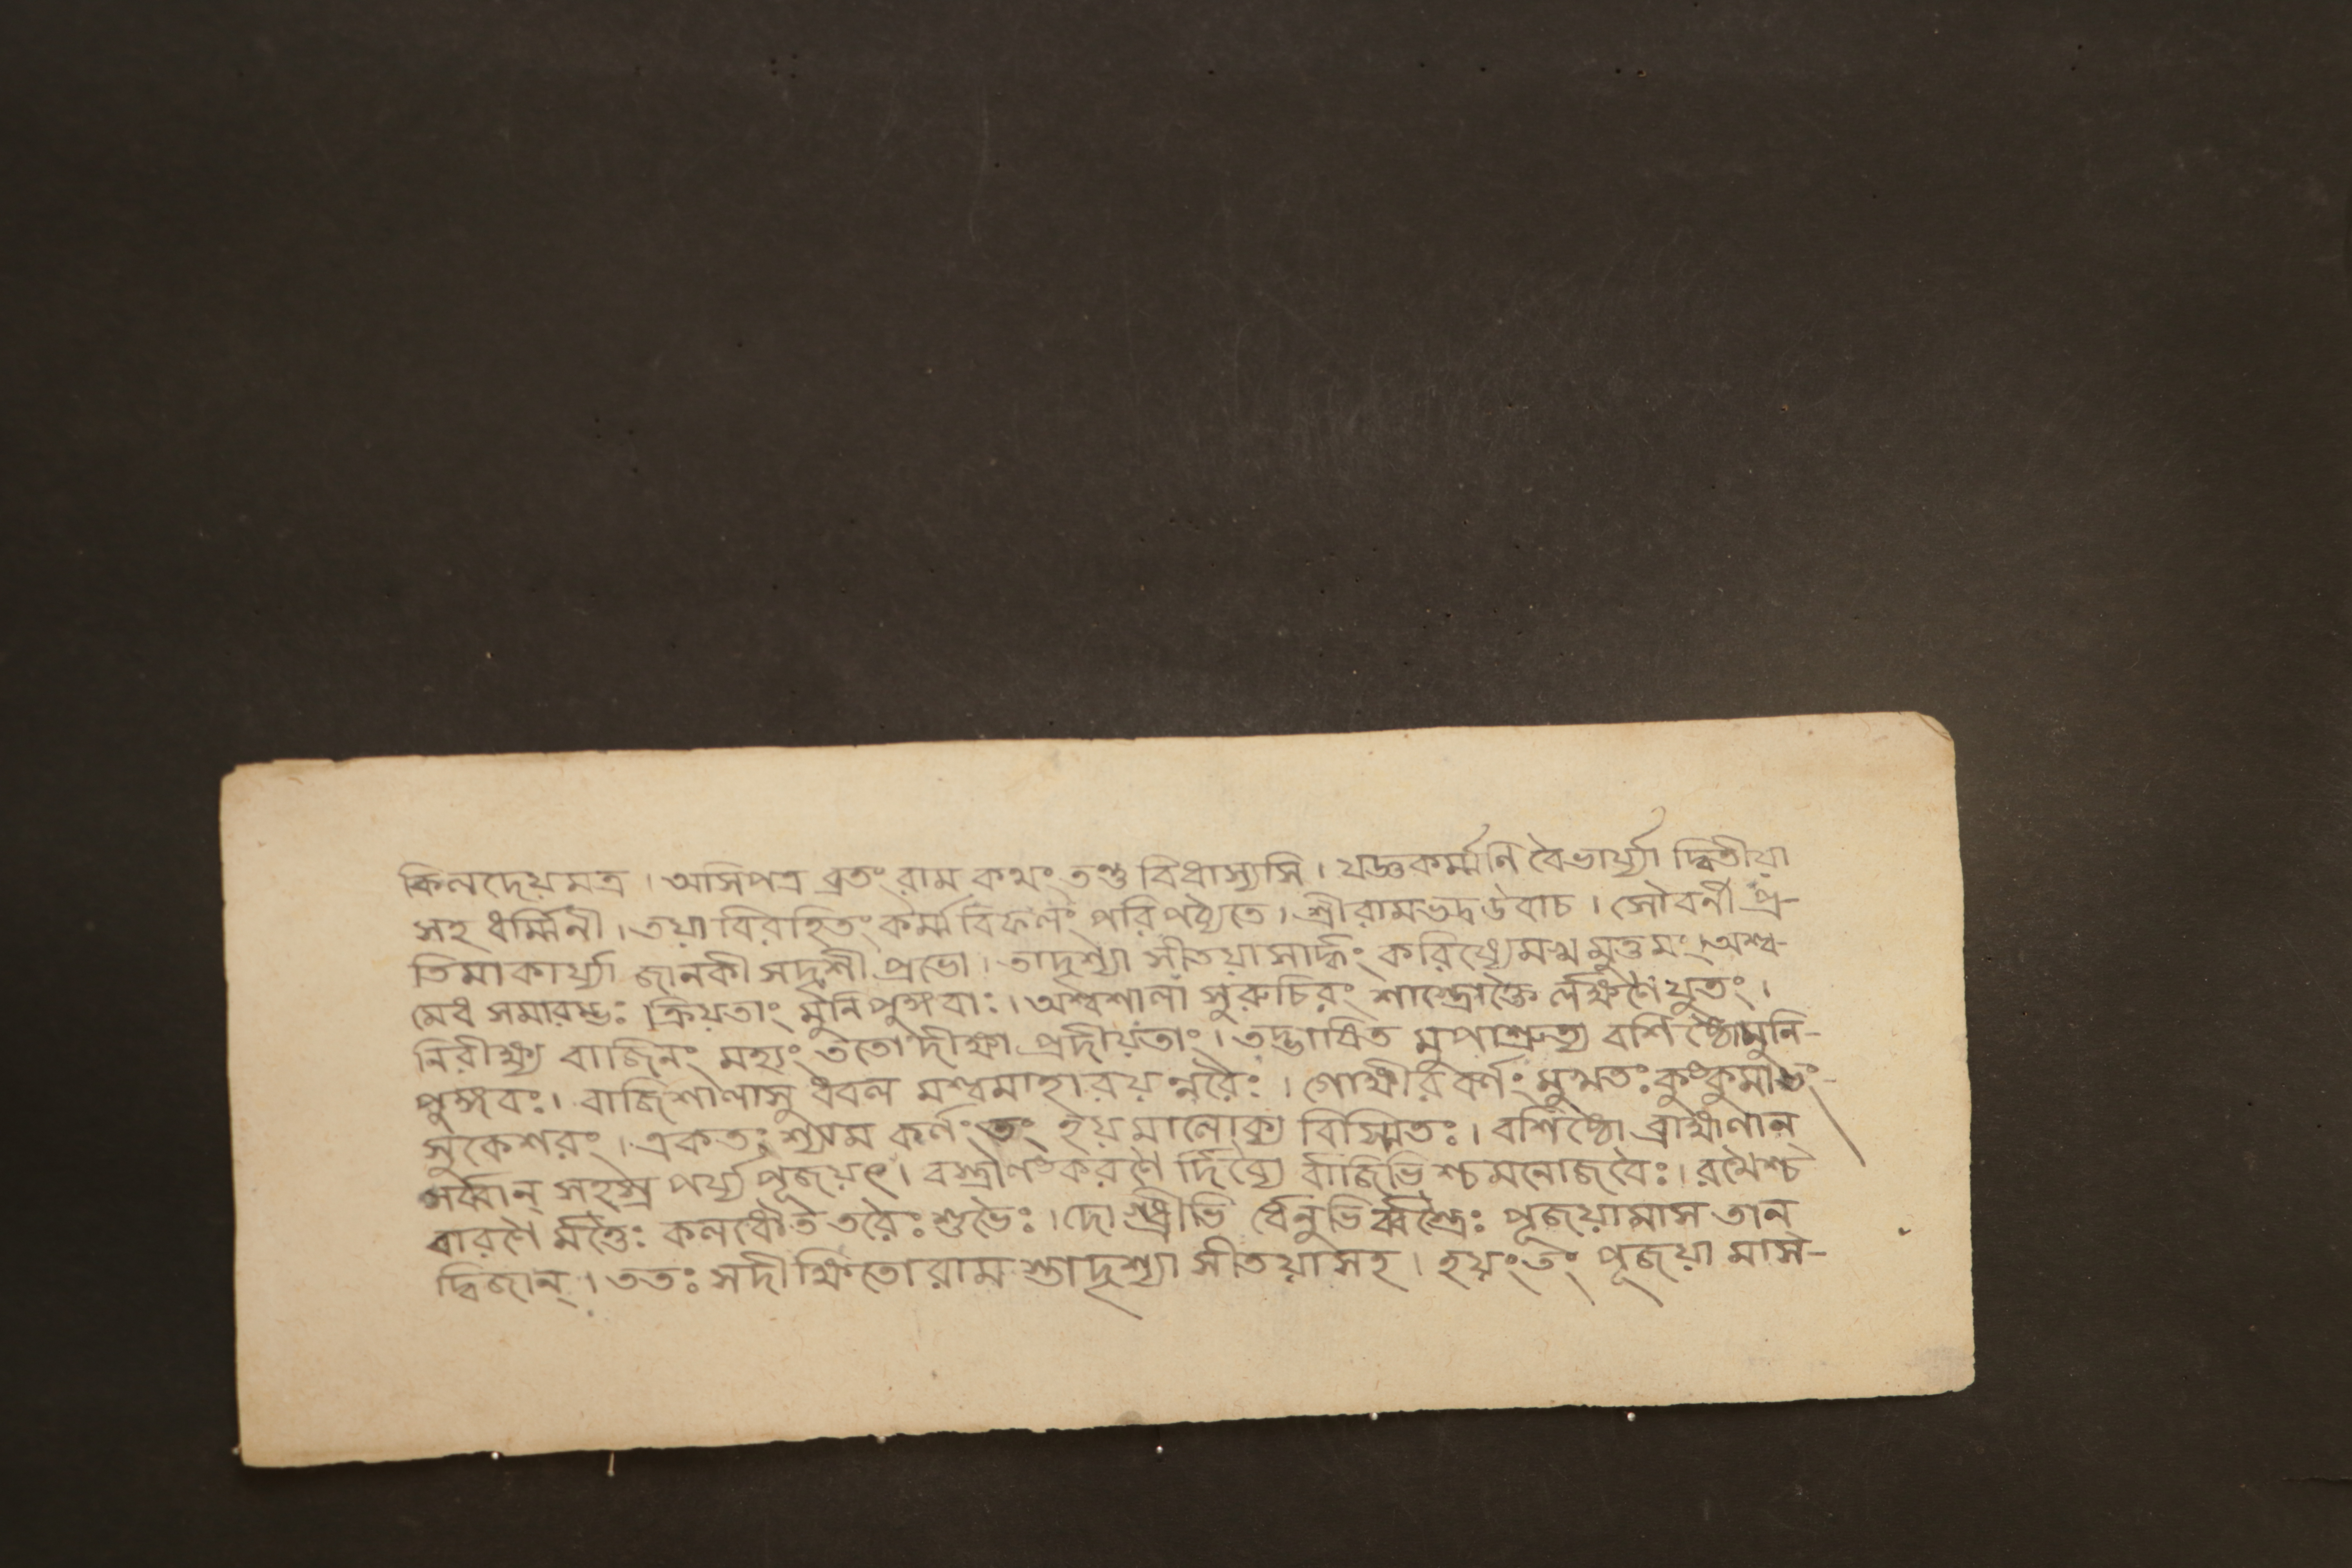 কিলদেয়মত্র । অসিপত্র ব্রতং রাম কথং তণ্ড বিধাস্যসি । যজ্ঞকর্ম্মণি বৈভার্য্যা দ্বিতীয়া
সহ ধর্ম্মিনী । তয়া বিরহিতং কর্ম্ম বিফলং পরিপঠ্যতে । শ্রীরামভদ্র উবাচ । সৌবর্নী প্র-
তিমা কার্য্যা জানকী সদৃশী প্রভো । তাদৃশ্যা সীতয়া সার্দ্ধং করিষ্যে মখ মুত্তমং । অশ্ব-
মেধ সমারম্ভঃ ক্রিয়তাং মুনি পুঙ্গবাঃ । অশ্বশালাং সুরুচিরং শাস্ত্রোক্তৈ র্লক্ষণৈ র্যুতং ।
নিরীক্ষ্য বাজিনং মহ্যং ততো দীক্ষা প্রদীয়তাং । তদ্ভাষিত মুপাশ্রুত্য বশিষ্ঠো মুনি-
পুঙ্গবঃ । বাজিশালাসু ধবল মশ্বমাহারয় ন্নরৈঃ । গোক্ষীর বর্ণং মুখতঃ কুংকুমাভং-
সুকেশরং । একতঃ শ্যাম কর্ণং তং হয়মালোক্য বিস্মিতঃ । বশিষ্ঠো ব্রাহ্মণান্
সর্ব্বান্ সহস্র পর্য্য পূজয়ৎ । বস্ত্রালংকরণৈ র্দিব্যৈ র্বাজিভি শ্চ মনোজবৈঃ । রথৈশ্চ
বারণৈ র্মত্তৈঃ কলধৌত তরৈঃ শুভৈঃ । দোগ্ধ্রীভি র্ধেনুভি র্ব্বস্ত্রৈঃ পূজয়ামাস তান্
দ্বিজান্ । ততঃ সদীক্ষিতো রাম স্তাদৃশ্যা সীতয়া সহ । হয়ং তং পূজয়া মাস-